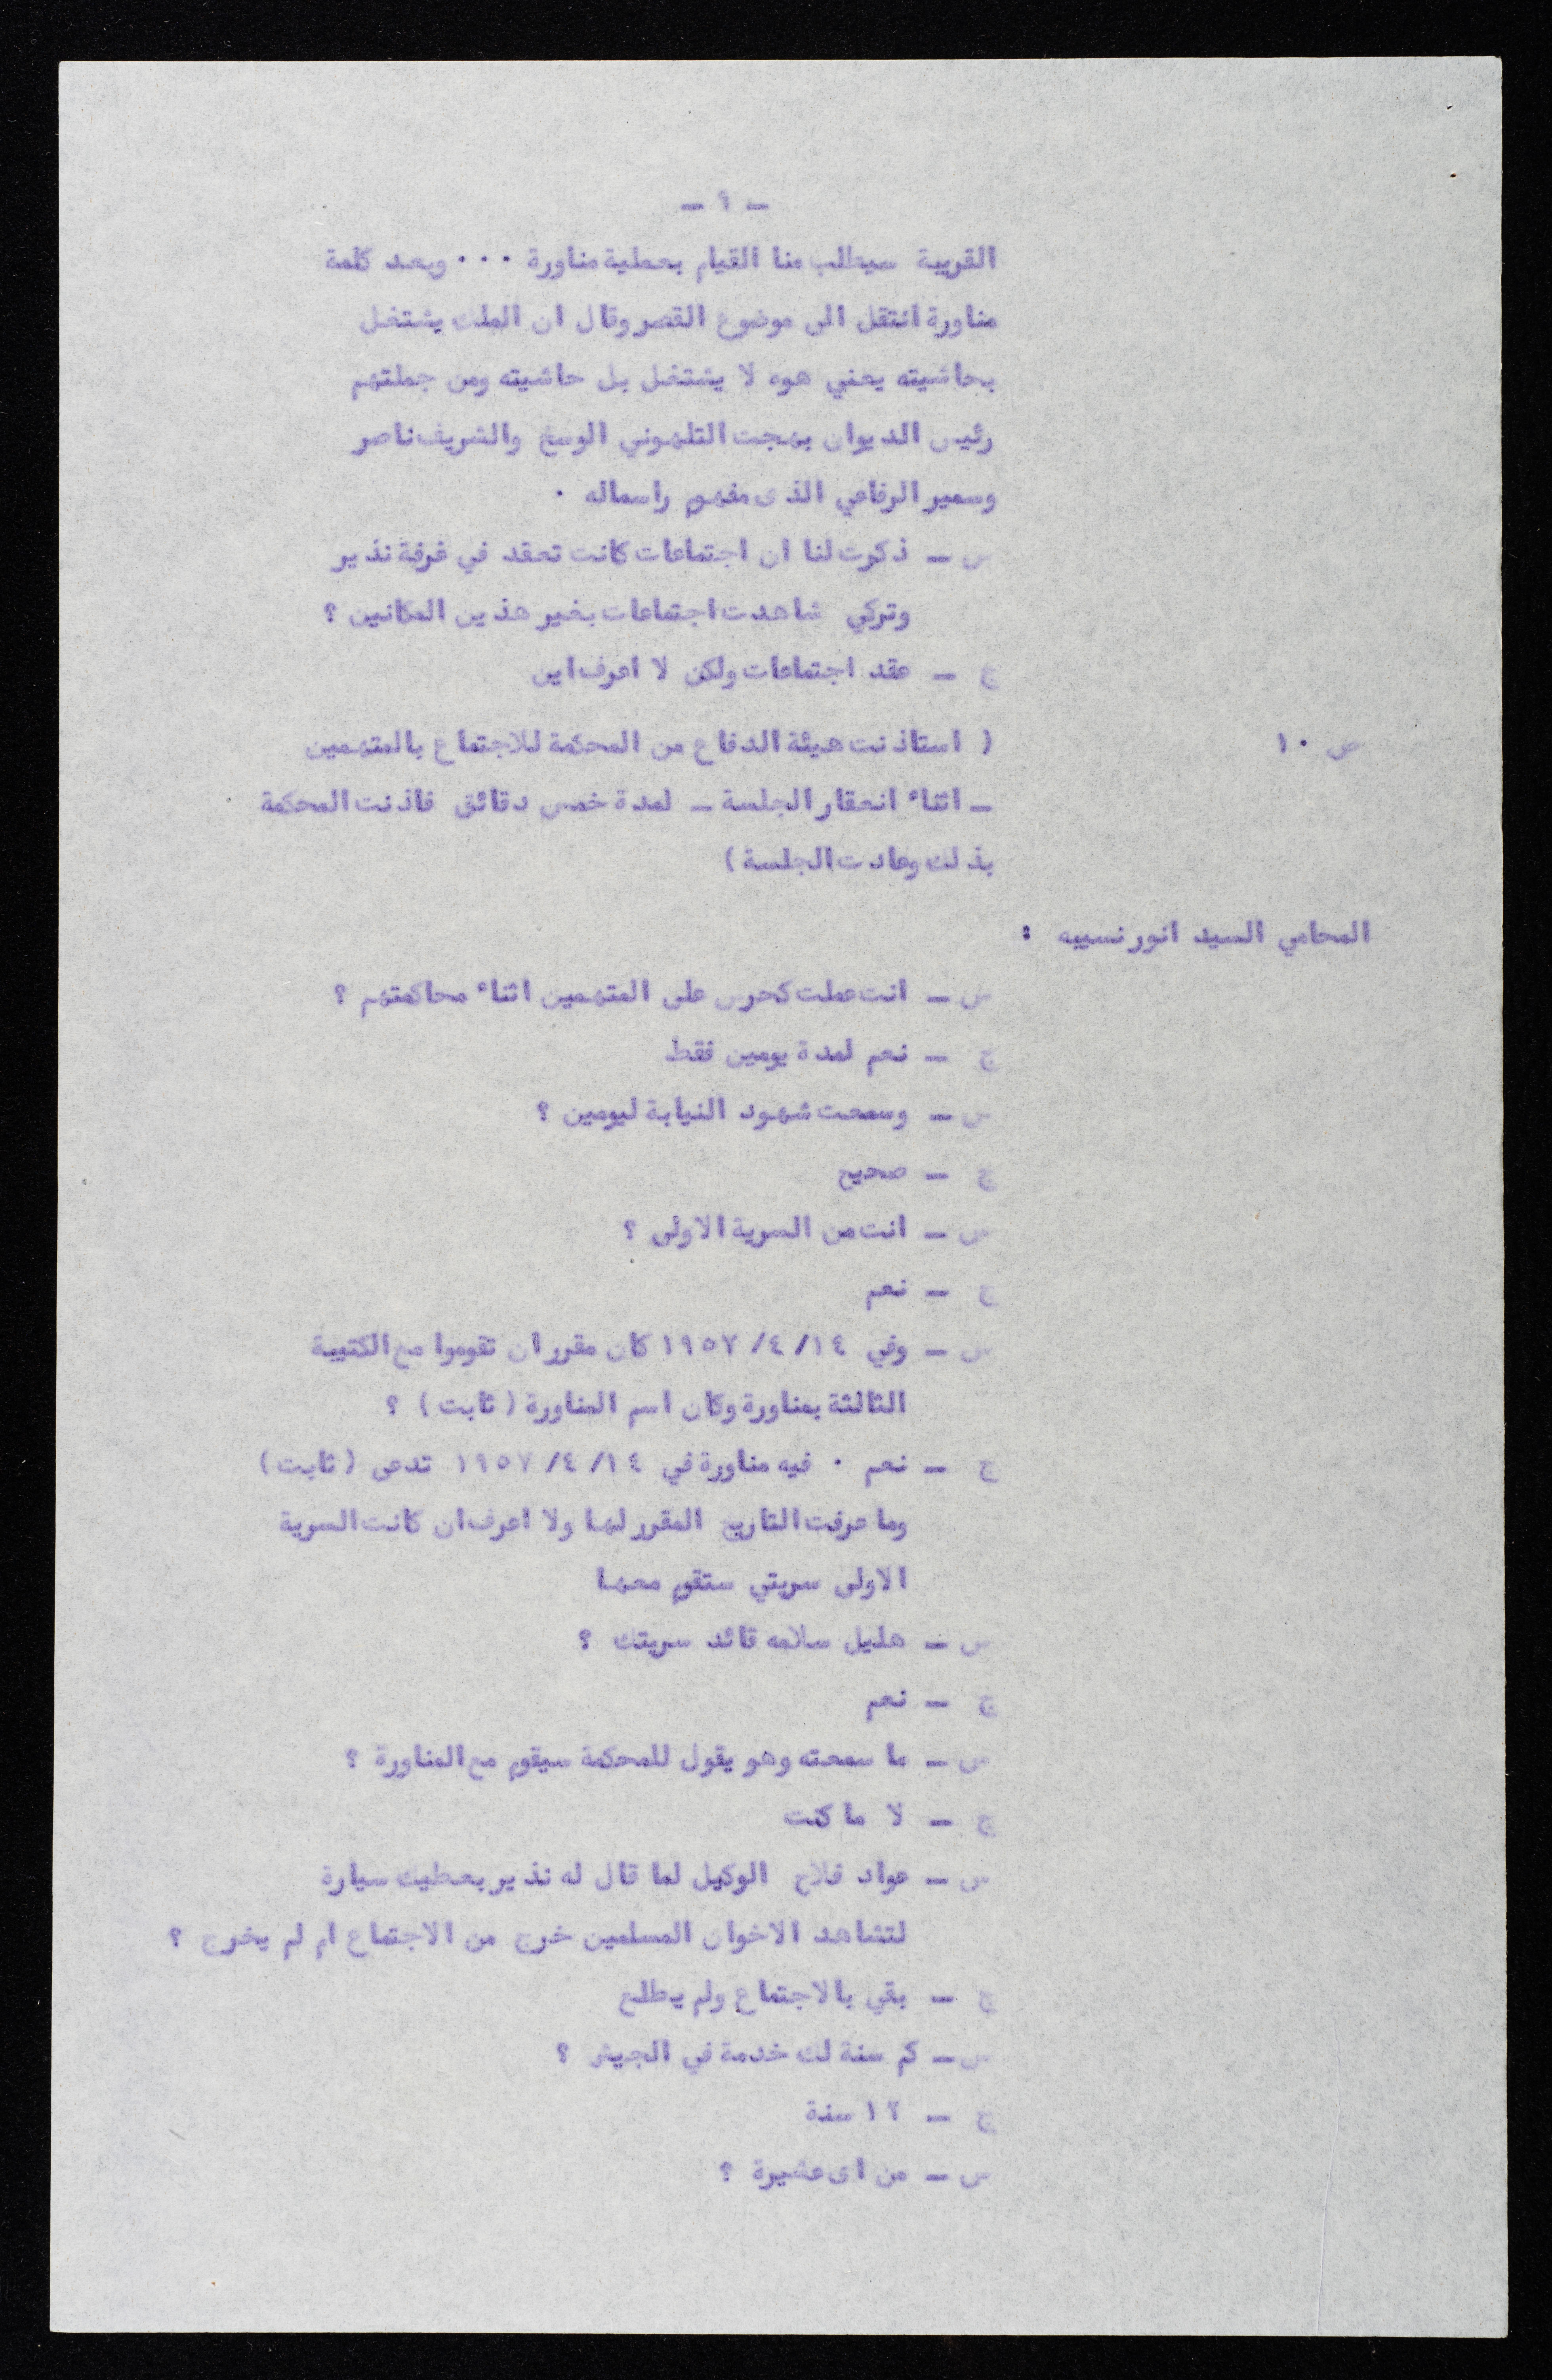 - ٩ -
القريبة سيطلب منا القيام بعملية مناورة ٠٠٠ وبعد كلمة
مناورة انتقل الى موضوع القصر وقال ان الملك يشتغل
بحاشيته يعني هوه لا يشتغل بل حاشيته ومن جملتهم
رئيس الديوان بهجت التلهوني الوسخ والشريف ناصر
وسمير الرفاعي الذى مفهوم راسماله ٠
س - ذكرت لنا ان اجتماعات كانت تعقد في غرفة نذير
وتركي شاهدت اجتماعات بغير هذين المكانين ؟
ج - عقد اجتماعات ولكن لا اعرف اين
ص ١٠ ( استاذنت هيئة الدفاع من المحكمة للاجتماع بالمتهمين
- اثناء انعقار الجلسة - لمدة خمس دقائق فاذنت المحكمة
بذلك وعادت الجلسة )
المحامي السيد انور نسيبه :
س - انت عملت كحرس على المتهمين اثناء محاكمتهم ؟
ج - نعم لمدة يومين فقط
س - وسمعت شهود النيابة ليومين ؟
ج - صحيح
س - انت من السرية الاولى ؟
ج - نعم
س - وفي ١٤/ ٤/ ١٩٥٧ كان مقرر ان تقوموا مع الكتيبة
الثالثة بمناورة وكان اسم المناورة ( ثابت ) ؟
ج - نعم ٠ فيه مناورة في ١٤/ ٤/ ١٩٥٧ تدعى ( ثابت )
وما عرفت التاريخ المقرر لها ولا اعرف ان كانت السرية
الاولى سريتي ستقوم معها
س - هليل سلامه قائد سريتك ؟
ج - نعم
س - ما سمعته وهو يقول للمحكمة سيقوم مع المناورة ؟
ج - لا ما كنت
س - عواد فلاح الوكيل لما قال له نذير بعطيك سيارة
لتشاهد الاخوان المسلمين خرج من الاجتماع ام لم يخرج ؟
ج - بقي بالاجتماع ولم يطلع
س - كم سنة لك خدمة في الجيش ؟
ج - ١٢ سنة
س - من اى عشيرة ؟